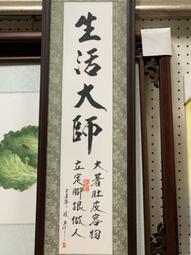 生活大師
大著肚皮容物
立定腳跟做人